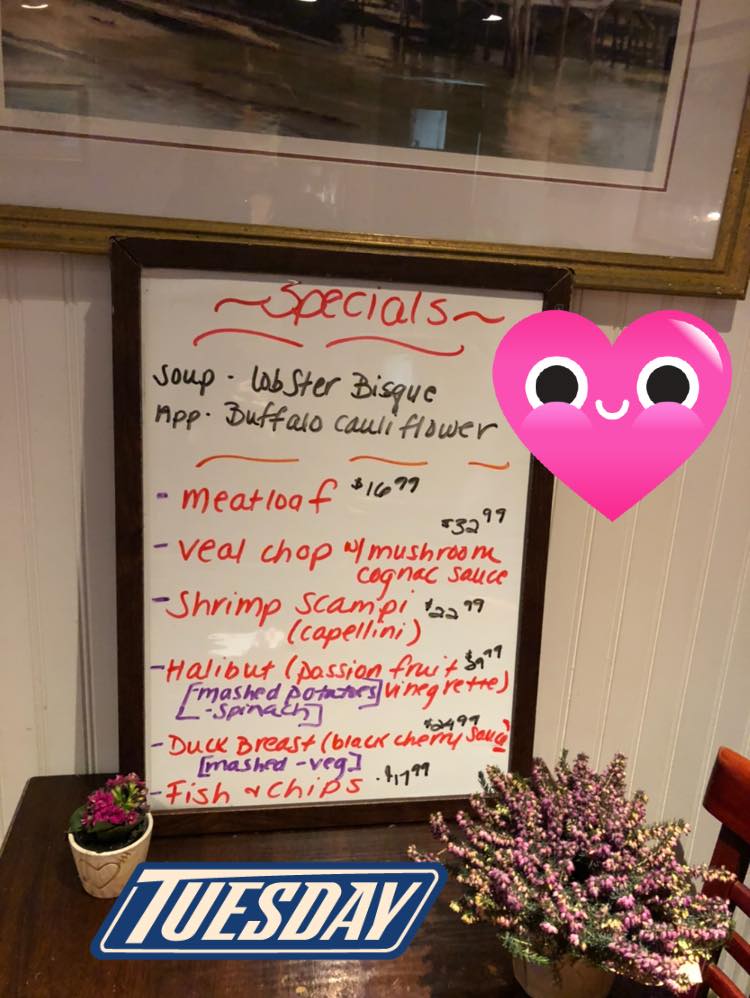 ~Specials~
Soup - Lobster Bisque
App - Buffalo Cauliflower
- meatloaf $16 99
$32 99
- Veal chop w/ mushroom
cognac sauce
- Shrimp Scampi $22 99
(capellini)
- Halibut (passion fruit
[mashed potatoes] vinegrette)
[-spinach]
$24 99
- Duck Breast (black cherry sauce)
[mashed - veg]
- Fish & Chips - $17 99
TUESDAY